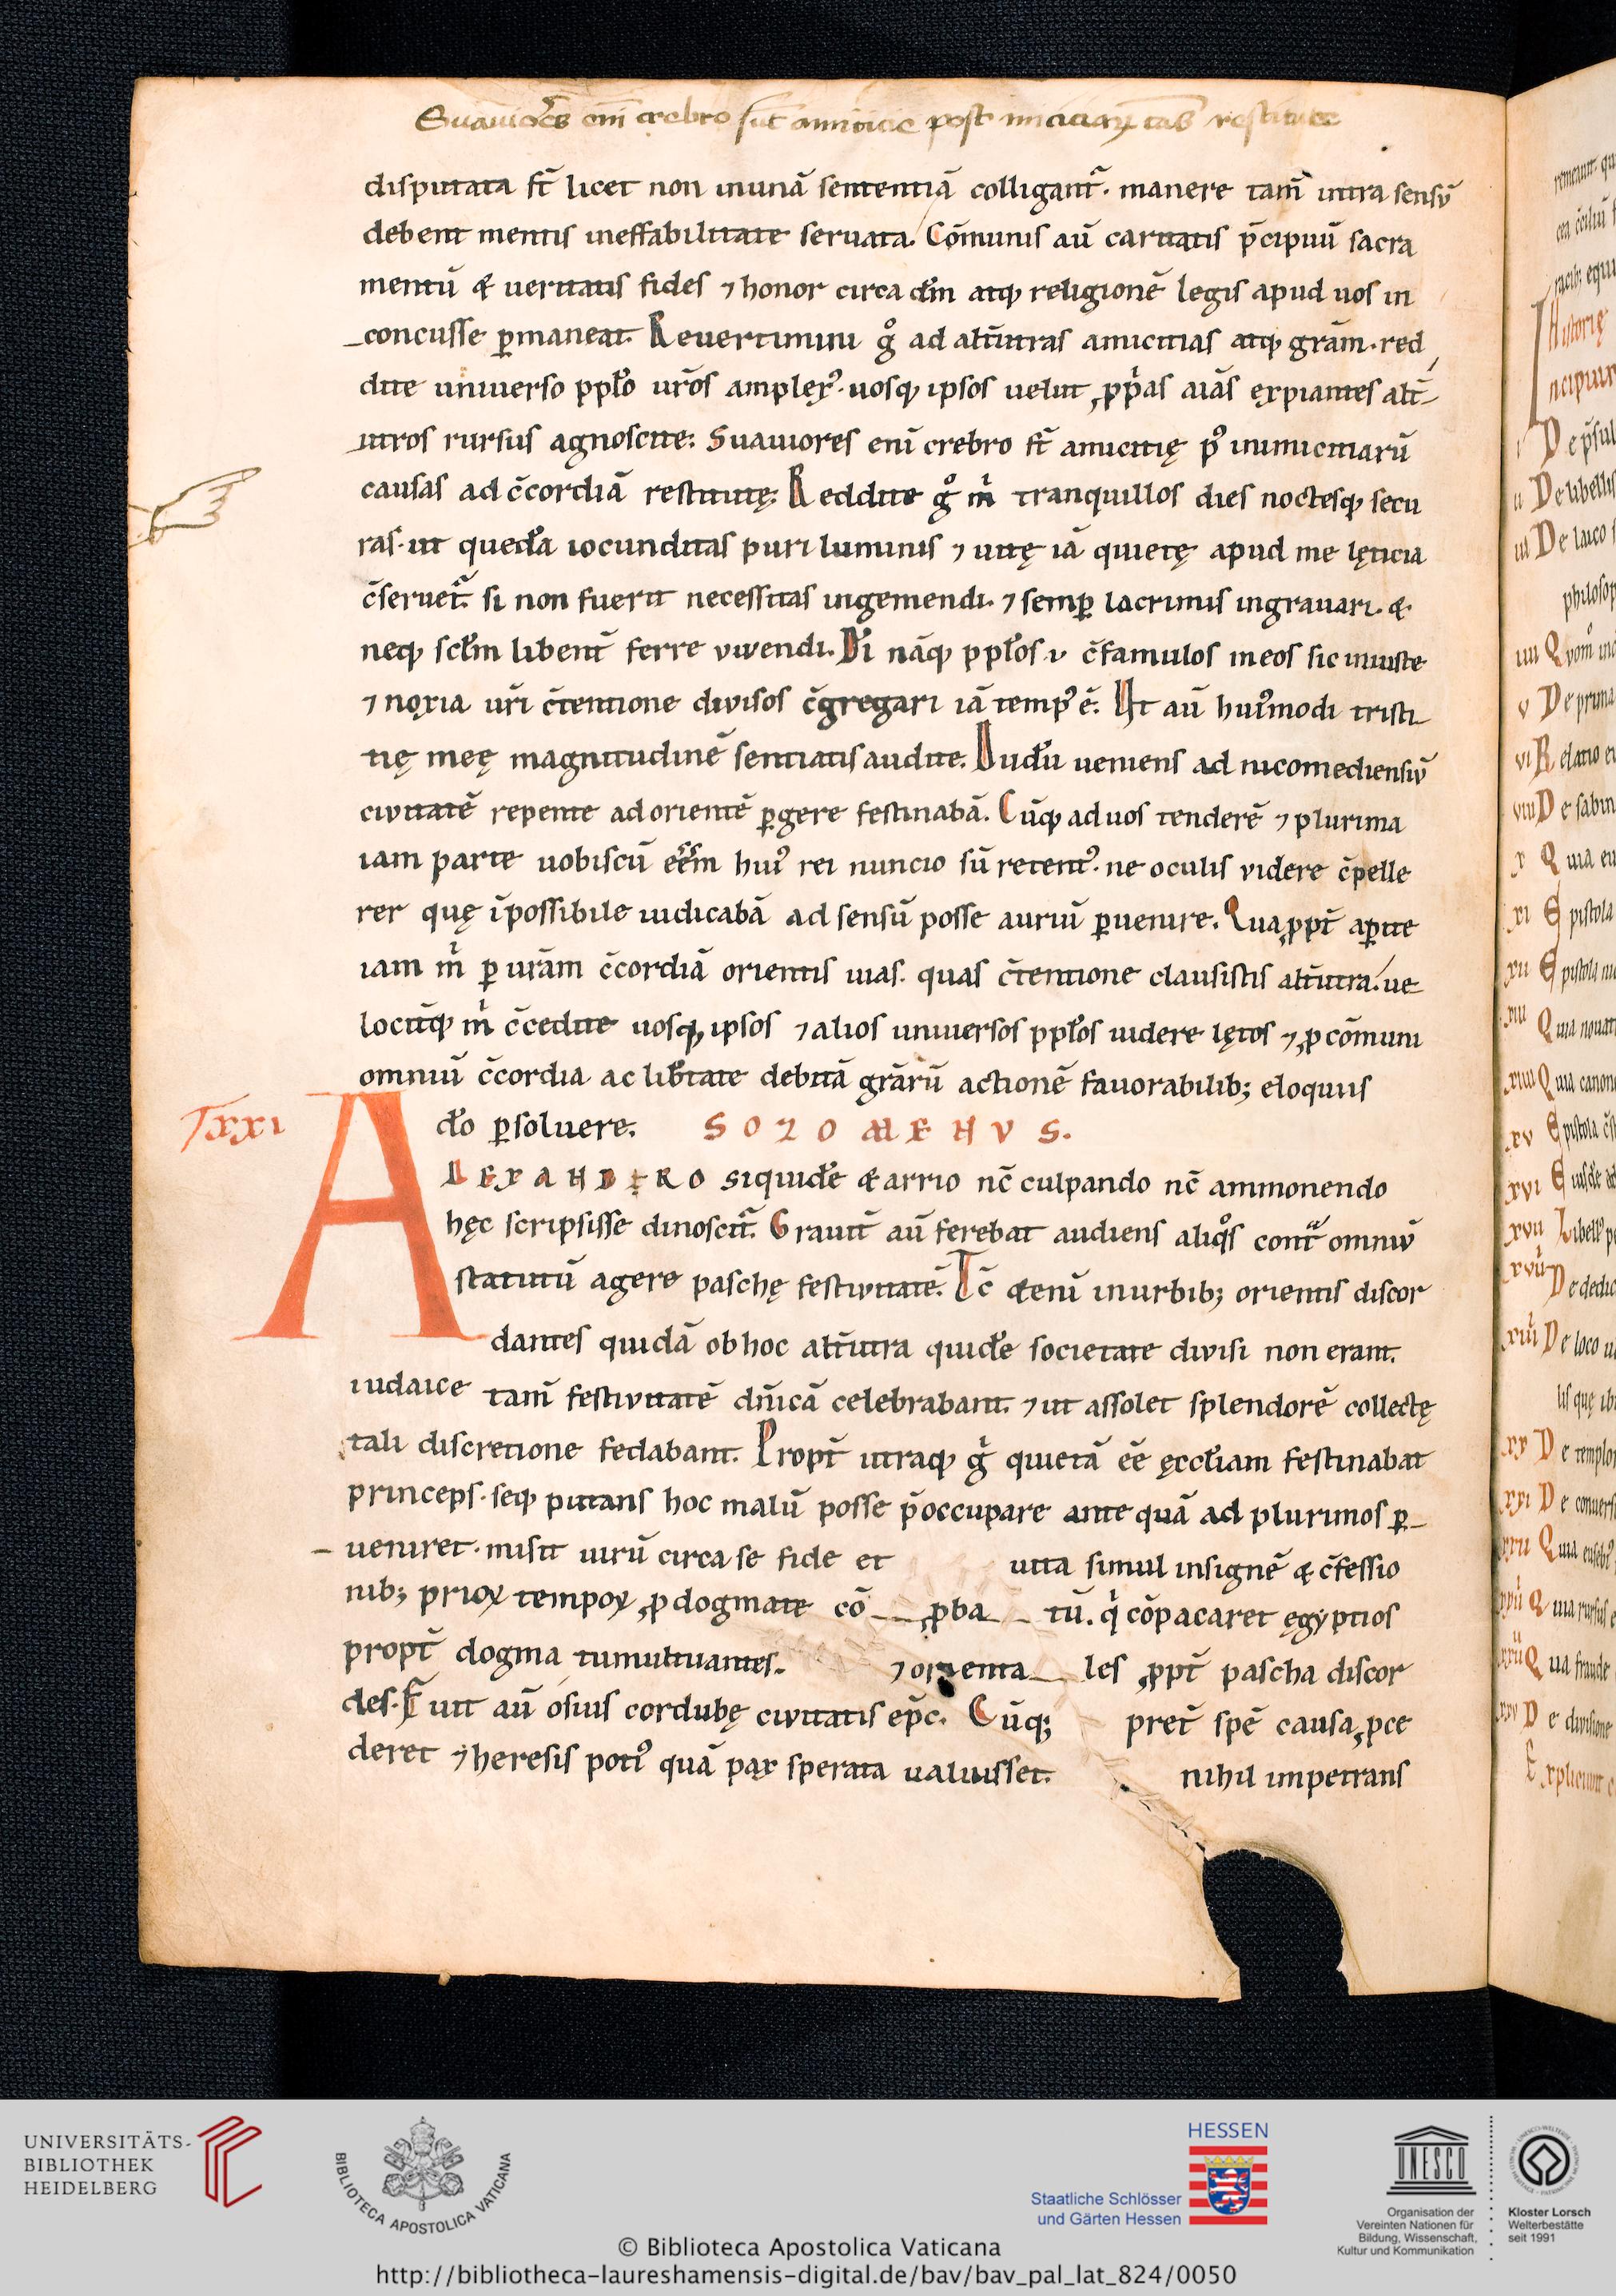 Suauiores eni crebro sut amicicie post inimiciciaꝝ cās restitute
disputata st̄ licet non inunā sententiā colligant᷑. manere tam̄ intra sensū
debent mentis ineffabilitate seruata. Cōmunis aū caritatis p̄cipuū sacra
mentū & ueritatis fides ⁊ honor circa dm̄ atq; religionē legis apud uos in
concusse ꝑmaneat. Reuertimini gͦ ad alt̄utras amicitias atq; grām. red
dite uniuerso ppl̄o ur̄os amplexꝰ. uosq; ipsos uelut ꝓpͥas aīas expiantes alt̄
utros rursus agnoscite. Suauiores enī crebro st̄ amicitię pꝰ inimicitiarū
causas ad c̄cordiā restitutę. Reddite gͦ mͥ tranquillos dies noctesq; secu
ras. ut quedā iocunditas puri luminis ⁊ uitę iā quietę apud me lęticia
c̄seruet᷑. si non fuerit necessitas ingemendi. ⁊ semꝑ lacrimis ingrauari. &
neq; scl̄m libent̄ ferre vivendi. Dī nāq; ppl̄os. v c̄famulos meos sic iniuste
⁊ noxia ur̄i c̄tentione divisos c̄gregari iā tempꝰ ē. Ut aū huiꝰmodi tristi
tię meę magnitudinē sentiatis audite. Dudū ueniens ad nicomediensiū
civitatē repente ad orientē ꝑgere festinabā. Cūq; ad uos tenderē ⁊ plurima
iam parte uobiscū eēm huiꝰ rei nuncio sū retentꝰ. ne oculis videre c̄pelle
rer quę īpossibile iudicabā ad sensū posse auriū ꝑuenire. Quaꝓpt̄ aꝑite
iam mͥ ꝑ ur̄am c̄cordiā orientis uias. quas c̄tentione clausistis alt̄utra. ue
lociūq; mͥ c̄cedite uosq; ipsos ⁊ alios uniuersos ppl̄os uidere lętos ⁊ ꝓ cōmuni
omniū c̄cordia ac lib̄tate debitā grārū actionē fauorabilib; eloquiis
do ꝑsoluere. SOZOMENVS.
Txxi
ALEXANDRO siquidē & arrio nc̄ culpando nc̄ ammonendo
hęc scripsisse dinoscit᷑. Grauit̄ aū ferebat audiens aliqͦs contͣ omniū
statutū agere paschę festivitatē. Tc̄ &enī inurbib; orientis discor
dantes quidā ob hoc alt̄utra quidē societate divisi non erant.
iudaice tam̄ festivitatē dn̄icā celebrabant. ⁊ ut assolet splendorē collectę
tali discretione fedabant. Propt̄ utraq; gͥ quietā eē ęccl̄iam festinabat
princeps. seq; putans hoc malū posse p̄occupare ante quā ad plurimos ꝑ
ueniret. misit uirū circa se fide et uita simul insignē & c̄fessio
nib; prioꝝ tempoꝝ ꝓ dogmate cō ꝓba tū. qͥ cōpacaret ęgyptios
propt̄ dogma tumultuantes. ⁊ orienta les ꝓpt̄ pascha discor
des. Fuit aū osius cordubę civitatis ep̄c. Cūq; pret̄ spē causa ꝓce
deret ⁊ heresis potiꝰ quā pax sperata ualuisset. nihil impetrans
UNIVERSITÄTS-
BIBLIOTHEK
HEIDELBERG
BIBLIOTECA APOSTOLICA VATICANA
HESSEN
Staatliche Schlösser
und Gärten Hessen
UNESCO
Organisation der
Vereinten Nationen für
Bildung, Wissenschaft,
Kultur und Kommunikation
Kloster Lorsch
Welterbestätte
seit 1991
© Biblioteca Apostolica Vaticana
http://bibliotheca-laureshamensis-digital.de/bav/bav_pal_lat_824/0050